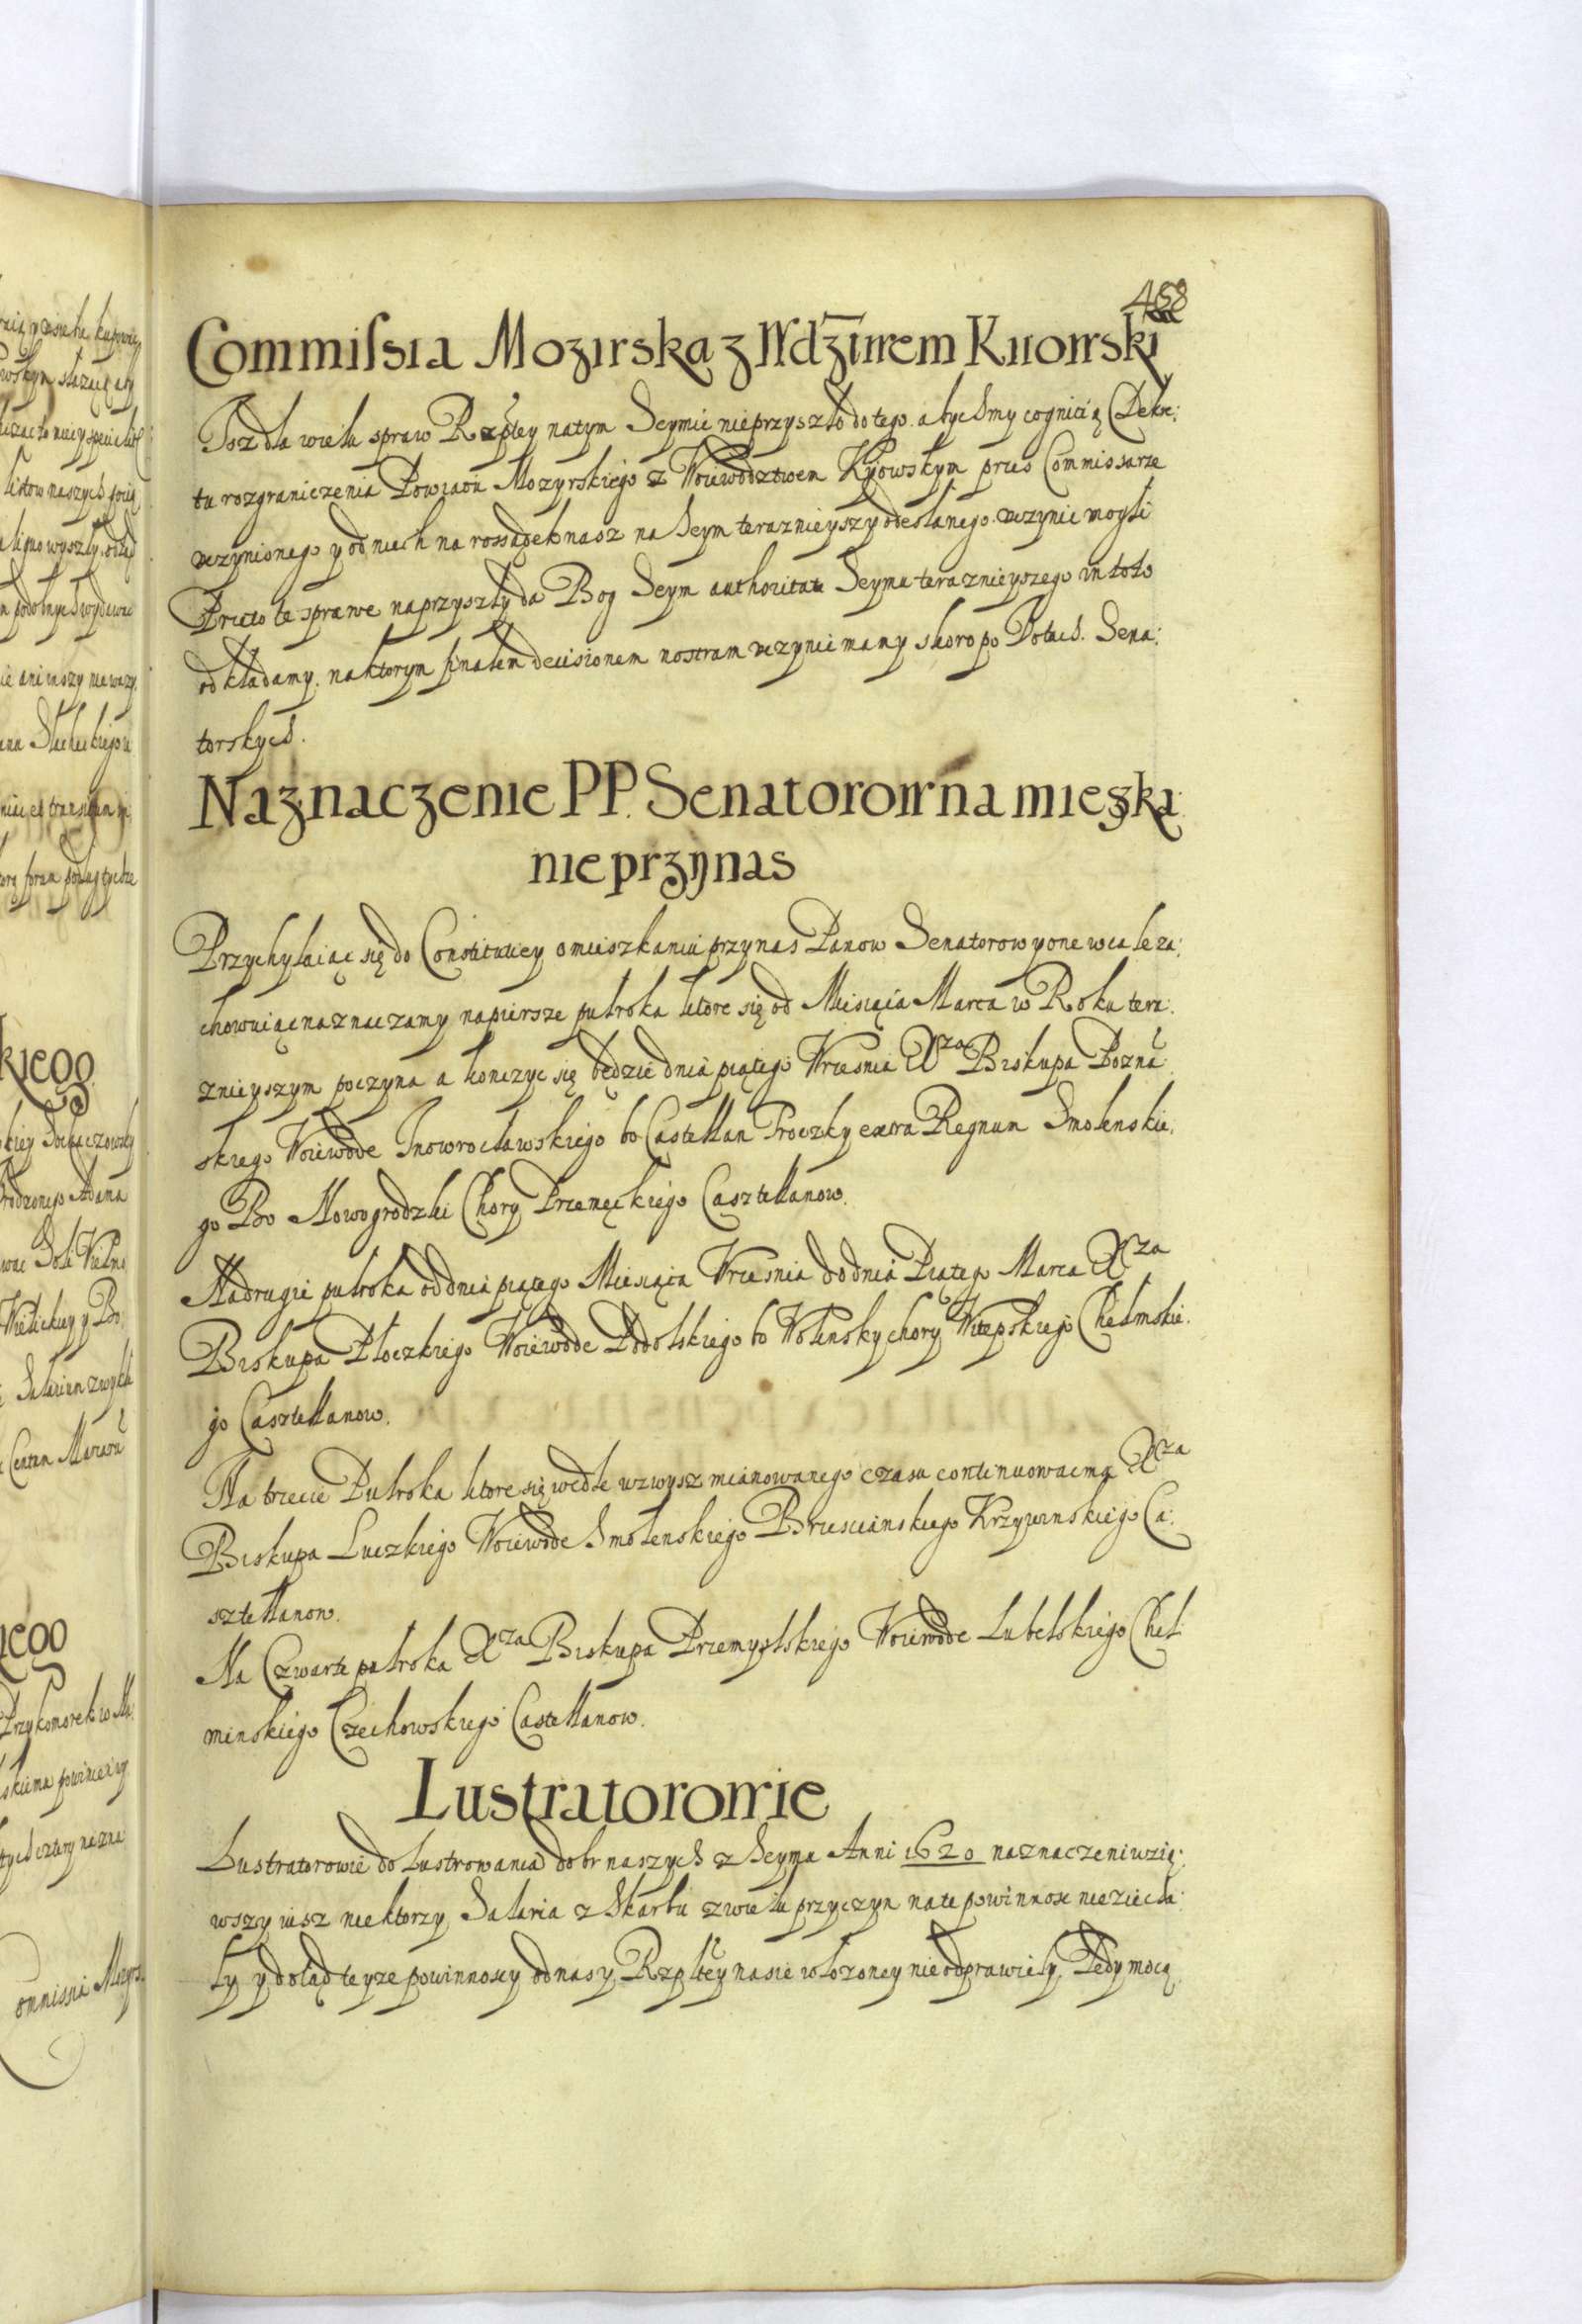 468
Commissia Mozirska z Wdztwem Kiiowski
Isz dla wielu spraw Rzpltey natym Seymie nieprzyszło dotego abychmy cognitią Dekre:
tu rozgraniczenia Powiatu Mozyrskiego z Woiewodztwem Kyiowskym przes Commissarze
uczynionego y od niech na rossądek nasz na Seym teraznieyszy odesłanego uczynic mogli
Przeto te sprawe naprzyszły da Bog Seym authoritate Seymu teraznieyszego in toto
odkładamy. naktorym finalem decisionem nostram uczynic mamy skoro po Wotach Sena:
torskych.
Naznaczenie PP. Senatorow na mieszka:
nie przy nas
Przychylaiąc się do Constitutiey o mieszkaniu przynas Panow Senatorow y one wcale za:
chowuiąc naznaczamy napiersze pułroka ktore się od Miesiąća Marca w Roku tera:
znieyszym poczyna a konczyc się będzie dnia piątego Wrzesnia Xza Biskupa Pozna
skiego Woiewode Inowrocławskiego bo Castellan Troczky extra Regnum Smolenskie:
go Bo Nowogrodzki Chory Przemęckiego Casztellanow.
Nadrugie pułroka oddnia piątego Miesiąca Wrzesnia do dnia Piątego Marca Xza
Biskupa Płoczkiego Woiewode Podolskiego bo Wolensky chory Witepskiego Chełmskie:
go Casztellanow.
Na trzecie Pułroka ktore się wedle wzwysz mianowanego czasu continuowac ma Xza
Biskupa Luczkiego Woiewode Smolenskiego Brzescianskiego Krzywinskiego Ca:
sztellanow.
Na Czwarte pułroka Xza Biskupa Przemyslskiego Woiewode Lubelskiego Cheł
minskiego Czechowskiego Castellanow.
Lustratorowie
Lustratorowie do lustrowania dobr naszych z Seymu Anni 1620 naznaczeni wzią:
wszy iusz niektorzy Salaria z Skarbu z wielu przyczyn nate powinnosc nieziecha:
ły y dotąd teyze powinnoscy odnas y Rzpltey nasie włozoney nieodprawiely. Tedy mocą